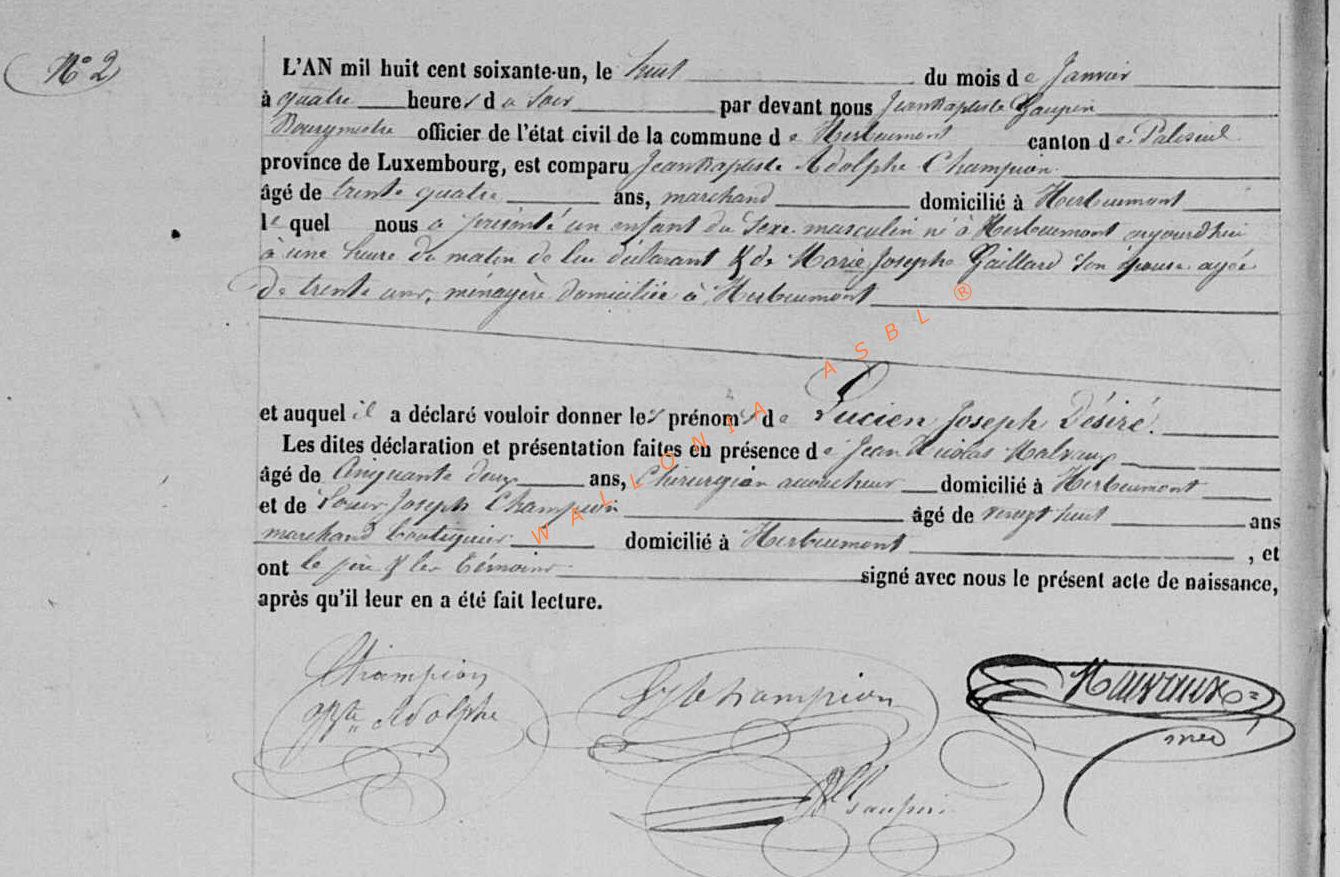 N° 2
L'AN mil huit cent soixante-un, le huit du mois de Janvier
à quatre heures du soir par devant nous Jean Baptiste Gaupin
Bourgmestre officier de l'état civil de la commune de Herbeumont canton de Paliseul
province de Luxembourg, est comparu Jean Baptiste Adolphe Champion
âgé de trente quatre ans, marchand domicilié à Herbeumont
lequel nous a présenté un enfant du sexe masculin né à Herbeumont aujourdhui
à une heure du matin de lui déclarant & de Marie Josephe Gaillard son épouse agée
de trente ans, ménagère domiciliée à Herbeumont
et auquel il a déclaré vouloir donner les prénoms de Lucien Joseph Désiré.
Les dites déclaration et présentation faites en présence de Jean Nicolas Malvaux
âgé de Cinquante deux ans, Chirurgien accoucheur domicilié à Herbeumont
et de Louis Joseph Champion âgé de vingt huit ans
marchand boutiquier domicilié à Herbeumont , et
ont le père & les témoins signé avec nous le présent acte de naissance,
après qu'il leur en a été fait lecture.
Champion
Bte Adolphe
Champion
Malvaux
Gaupin
WALLONIA ASBL ®